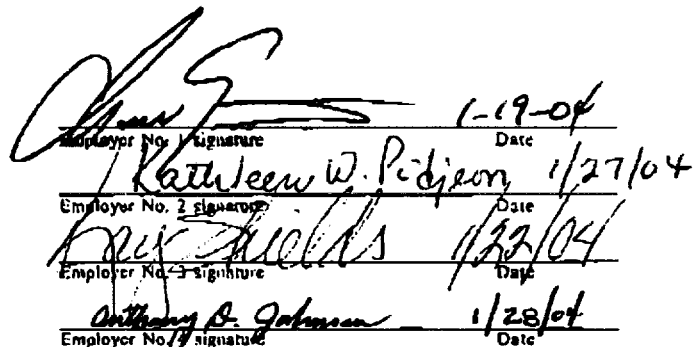 1-19-04
Employer No. 1 signature Date
Kathleen W. Pidjeon 1/27/04
Employer No. 2 signature Date
Shields 1/22/04
Employer No. 3 signature Date
Anthony D. Johnson 1/28/04
Employer No. 4 signature Date